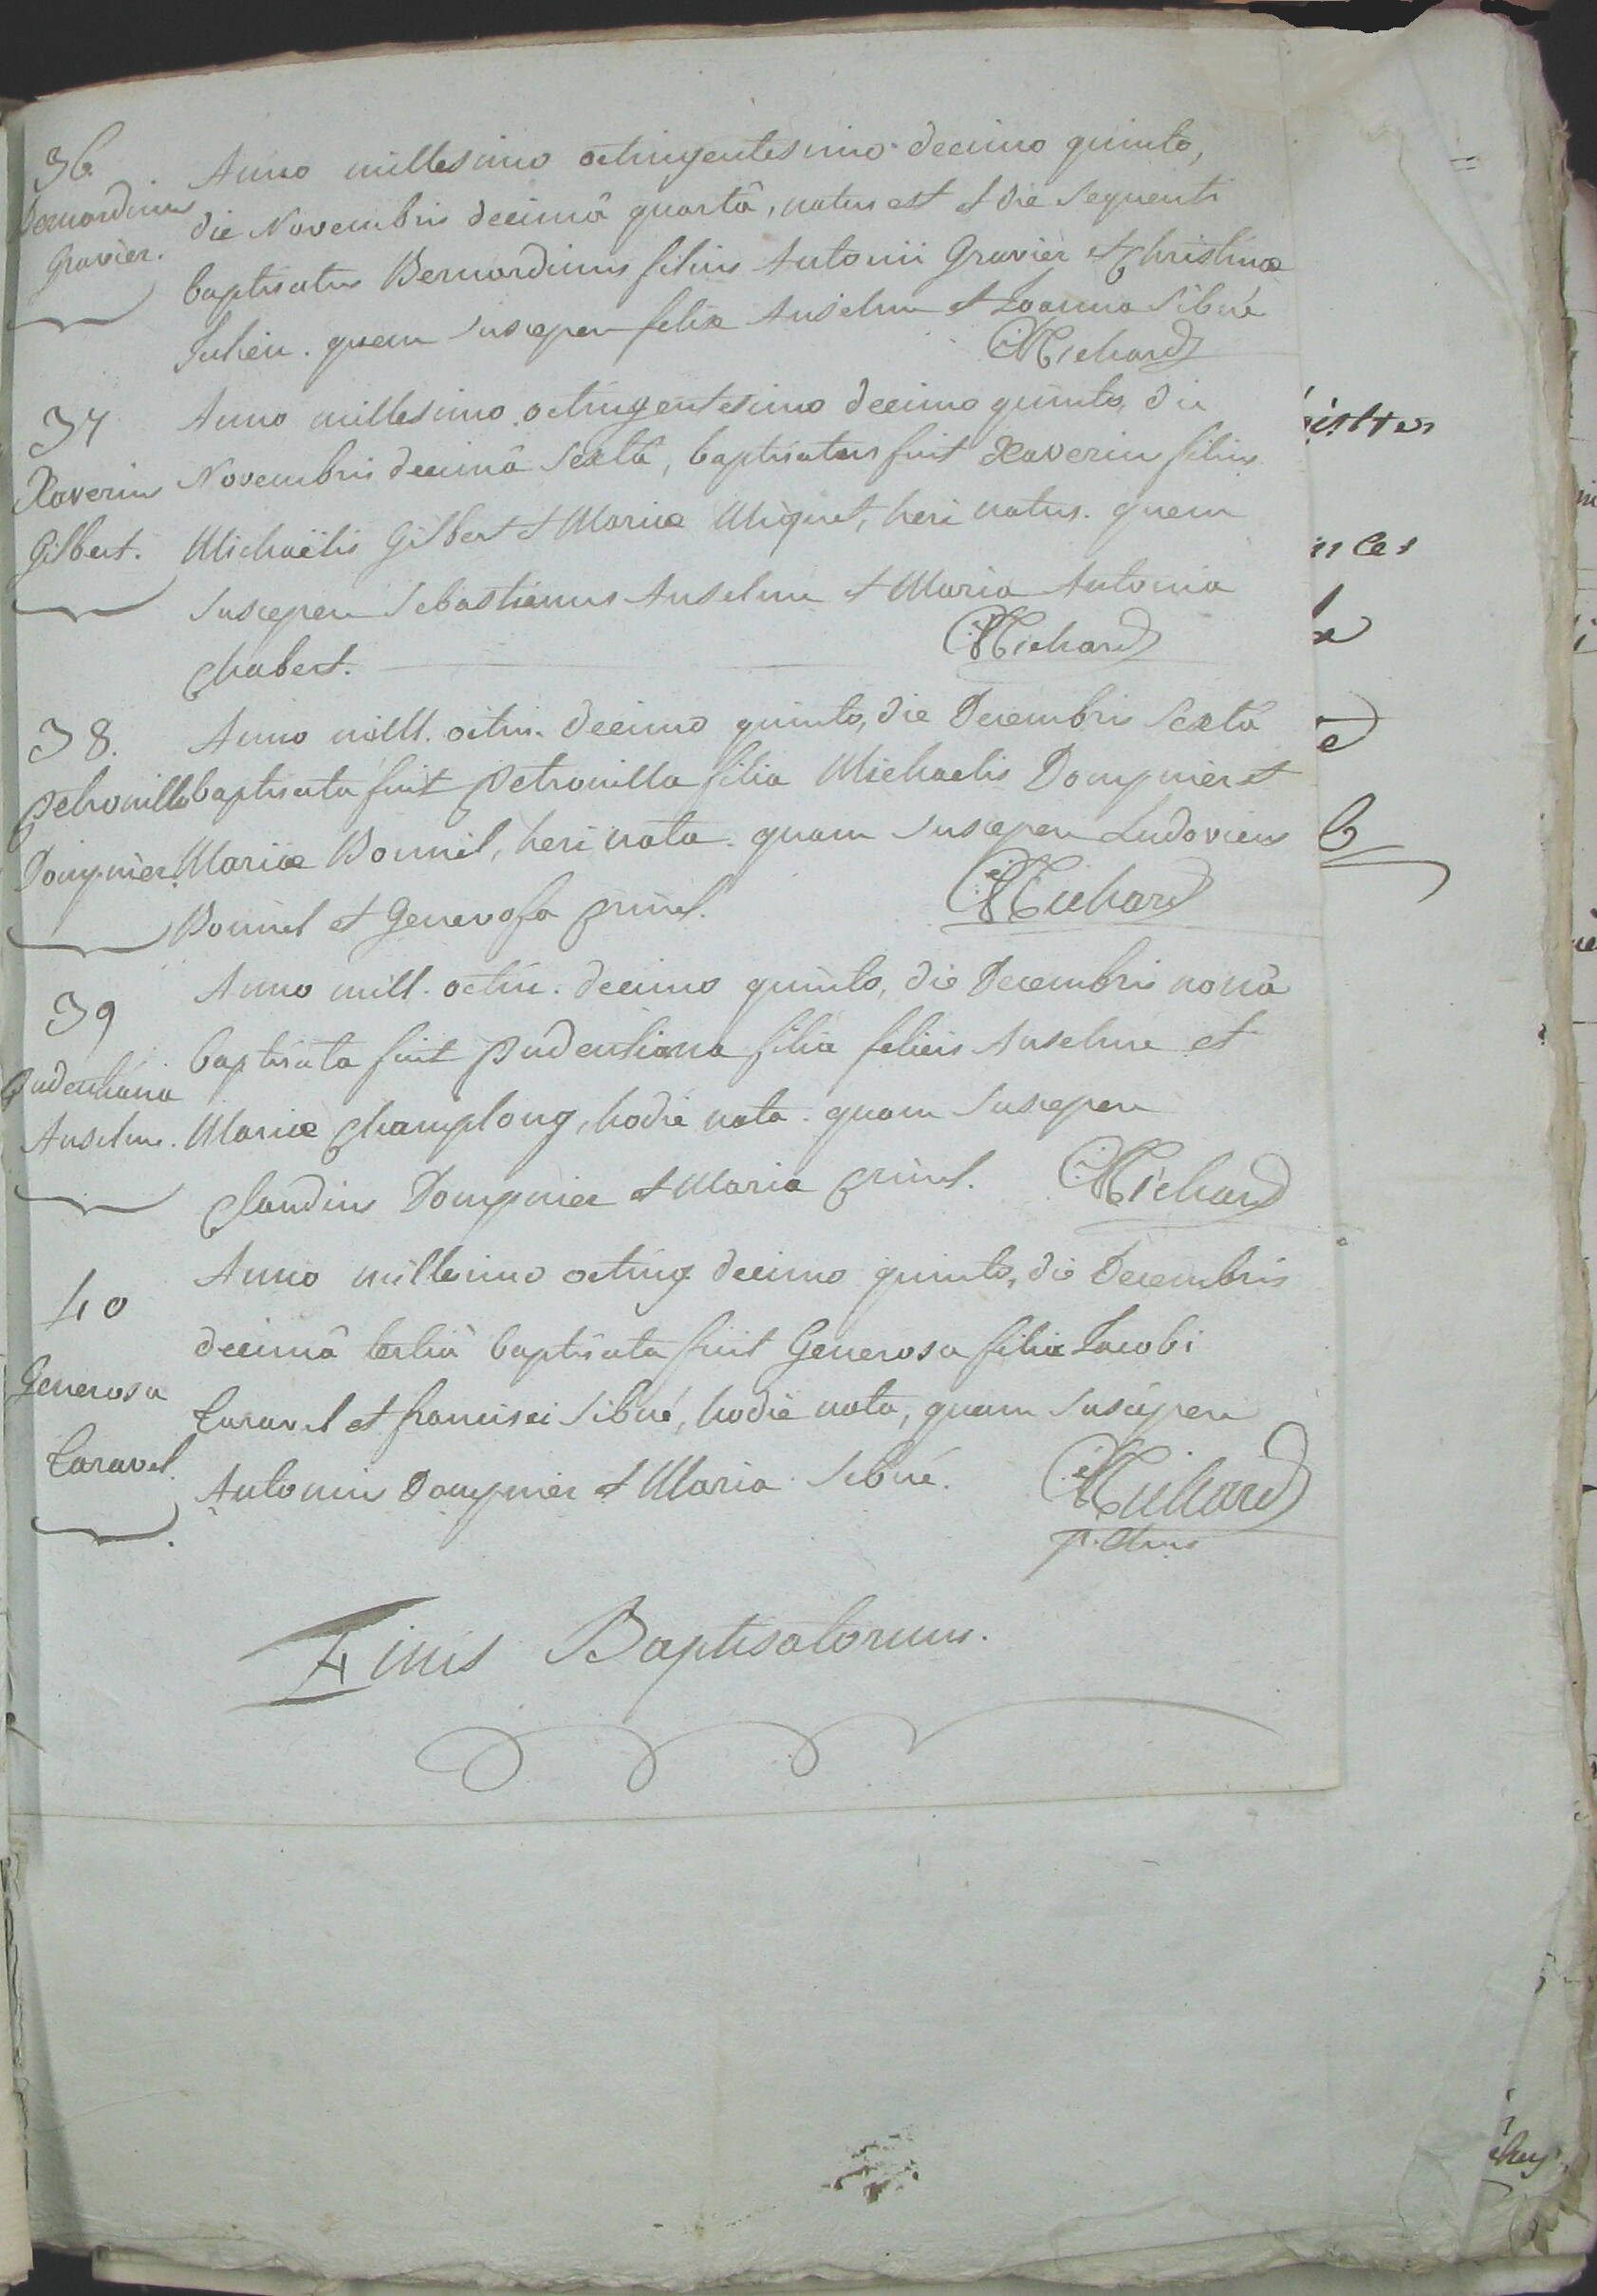 36
Bernardinus
Gravier.
Anno millesimo octingentesimo decimo quinto,
die Novembris decimâ quartâ, natus est et die sequenti
baptisatus Bernardinus filius Antonii Gravier et Christinæ
Julien. quem suscepere felix Anselme et Joanna Sibué
Richard
37
Xaverius
Gilbert.
Anno millesimo octingentesimo decimo quinto, die
Novembris decimâ Sextâ, baptisatus fuit Xaverius filius
Michaëlis Gilbert et Mariæ Miquet, heri natus. quem
suscepere Sebastianus Anselme et Maria Antonia
Chabert.
Richard
38.
Petronilla
Dompnier.
Anno mill. octin. decimo quinto, die Decembris Sextâ
baptisata fuit Petronilla filia Michaelis Dompnier et
Mariæ Bonnel, heri nata. quam suscepere Ludovicus
Bonnel et Genevofa
Richard
39
Pudentiana
Anselme.
Anno mill. octin. decimo quinto, die Decembris nonâ
baptisata fuit Pudentiana filia felicis Anselme et
Mariæ Champlong, hodie nata. quam suscepere
Claudius Dompnier et Maria
Richard
40
Generosa
Taravel.
Anno millesimo octing decimo quinto, die Decembris
decimâ tertiâ baptisata fuit Generosa filia Jacobi
Taravel et francisci Sibué, hodie nata, quam suscepere
Antonius Dompnier et Maria Sibué.
Richard
Finis Baptisatorum.